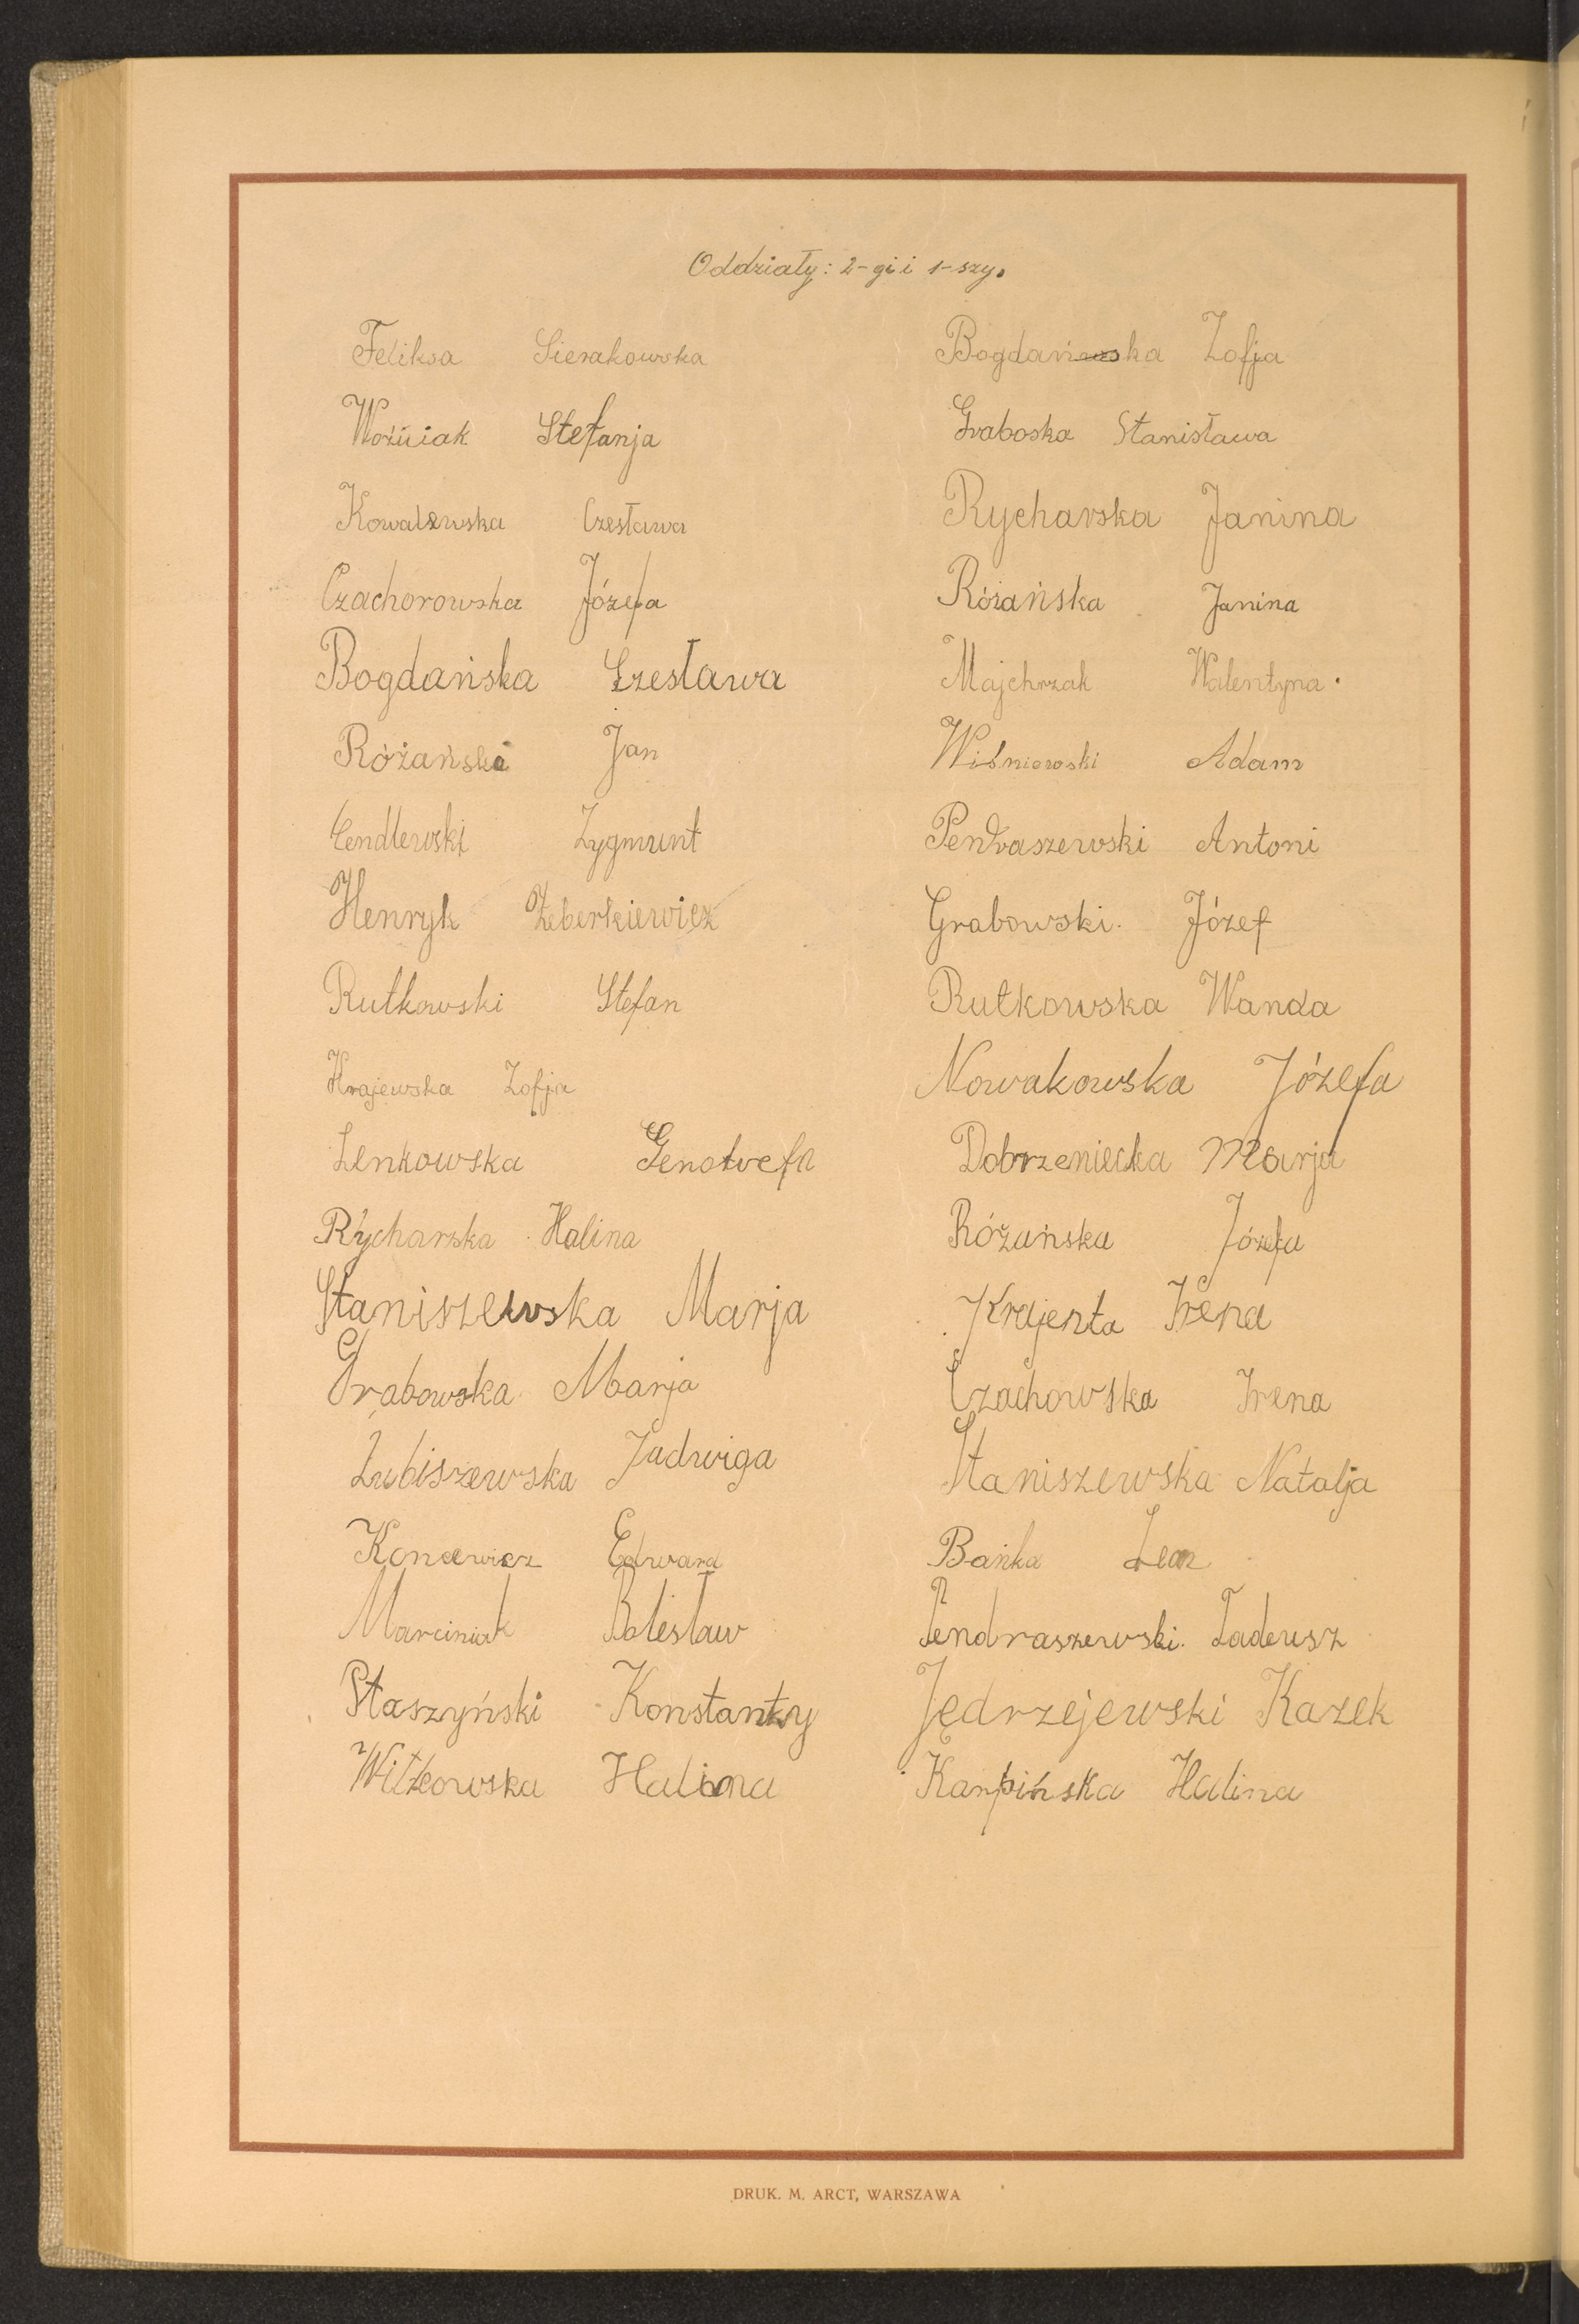 Oddziały: 2-gi i 1-szy.
Feliksa Sierakowska
Woźniak Stefanja
Kowalewska Czesława
Czachorowska Józefa
Bogdańska Czesława
Różański Jan
Cendlewski Zygmunt
Henryk Żeberkiewicz
Rutkowski Stefan
Krajewska Zofja
Lenkowska Genowefa
Rycharska Halina
Staniszewska Marja
Grabowska Marja
Lubiszewska Jadwiga
Koncewicz Edward
Marciniak Bolesław
Staszyński Konstanty
Witkowska Halina
Bogdańska Zofja
Graboska Stanisława
Rycharska Janina
Różańska Janina
Majchrzak Walentyna.
Wiśniewski Adam
Pendraszewski Antoni
Grabowski. Józef
Rutkowska Wanda
Nowakowska Józefa
Dobrzeniecka Marja
Różańska Józefa
Krajenta Irena
Czachowska Irena
Staniszewska Natalja
Bańka
Pendraszewski. Tadeusz
Jędrzejewski Kazek
Karpińska Halina
DRUK. M. ARCT, WARSZAWA